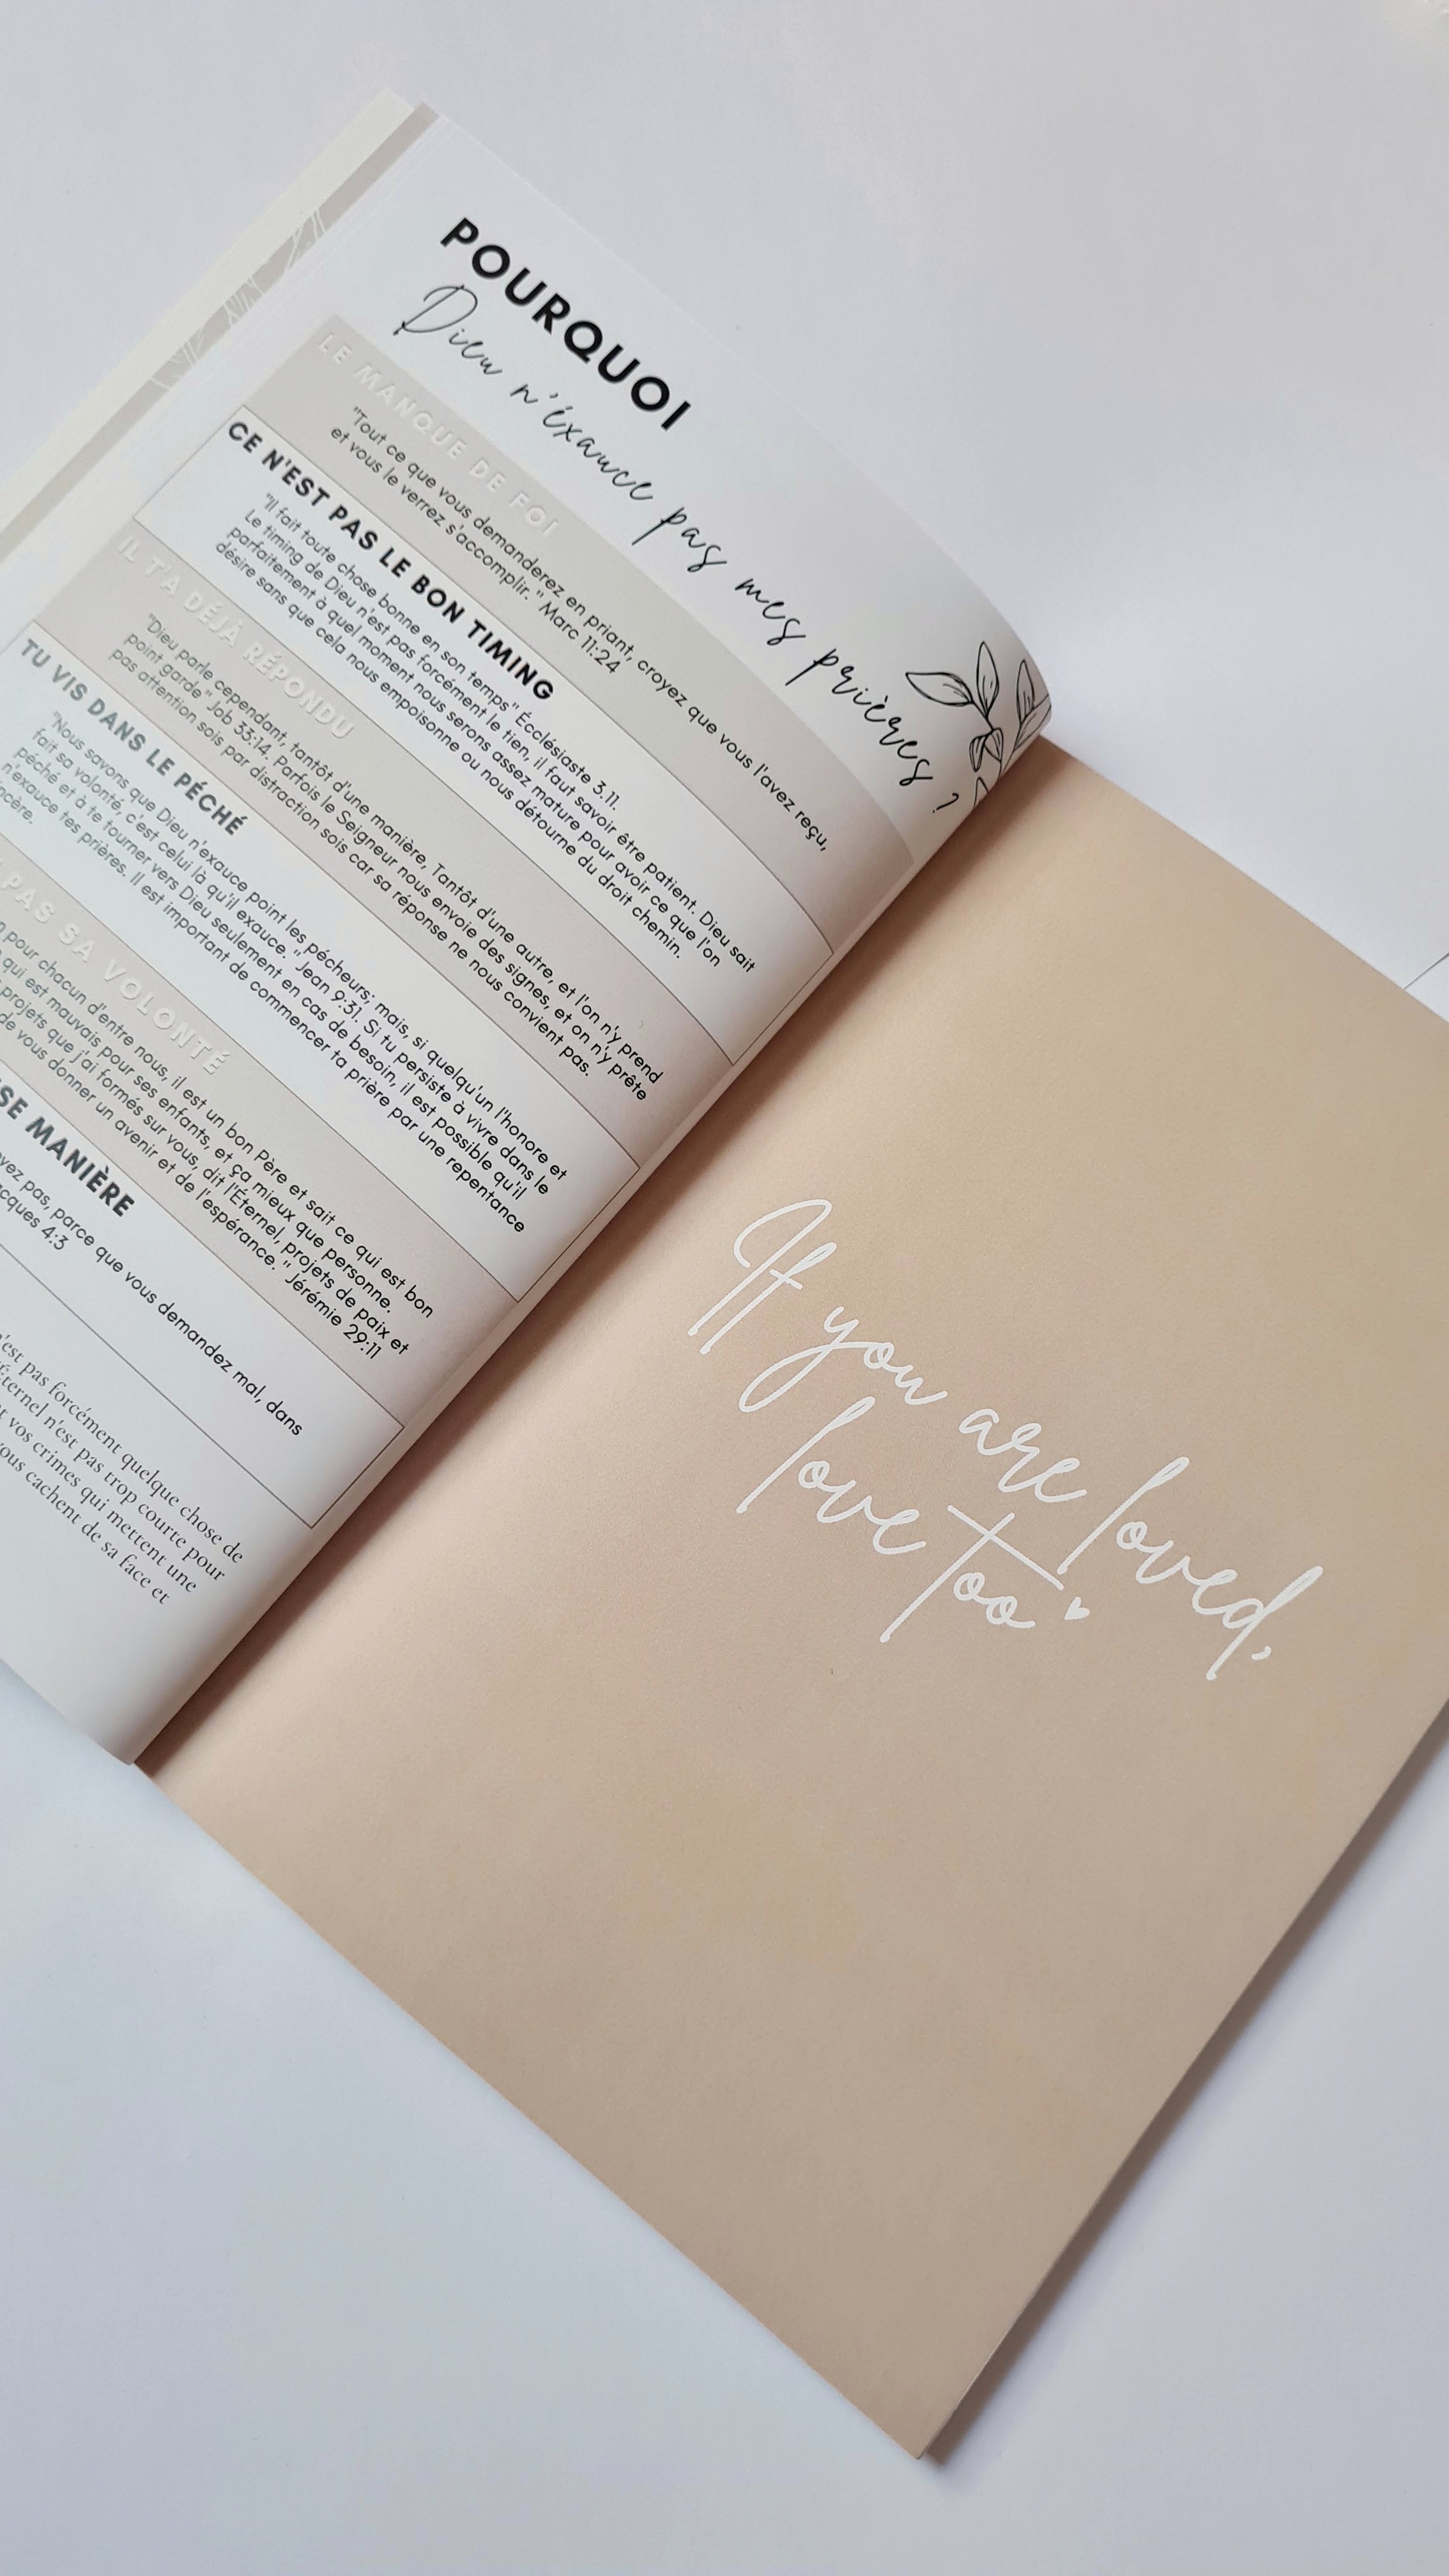 POURQUOI
Dieu n'éxauce pas mes prières ?
LE MANQUE DE FOI
"Tout ce que vous demanderez en priant, croyez que vous l'avez reçu,
et vous le verrez s'accomplir." Marc 11:24
CE N'EST PAS LE BON TIMING
"Il fait toute chose bonne en son temps" Écclésiaste 3.11.
Le timing de Dieu n'est pas forcément le tien, il faut savoir être patient. Dieu sait
parfaitement à quel moment nous serons assez mature pour avoir ce que l'on
désire sans que cela nous empoisonne ou nous détourne du droit chemin.
IL T'A DÉJÀ RÉPONDU
"Dieu parle cependant, tantôt d'une manière, Tantôt d'une autre, et l'on n'y prend
point garde" Job 33:14. Parfois le Seigneur nous envoie des signes, et on n'y prête
pas attention sois par distraction sois car sa réponse ne nous convient pas.
TU VIS DANS LE PÉCHÉ
"Nous savons que Dieu n'exauce point les pécheurs; mais, si quelqu'un l'honore et
fait sa volonté, c'est celui là qu'il exauce. "Jean 9:31. Si tu persiste à vivre dans le
péché et à te tourner vers Dieu seulement en cas de besoin, il est possible qu'il
n'exauce tes prières. Il est important de commencer ta prière par une repentance
PAS SA VOLONTÉ
pour chacun d'entre nous, il est un bon Père et sait ce qui est bon
qui est mauvais pour ses enfants, et ça mieux que personne.
projets que j'ai formés sur vous, dit l'Éternel, projets de paix et
de vous donner un avenir et de l'espérance." Jérémie 29:11
MANIÈRE
pas, parce que vous demandez mal, dans
4:3
n'est pas forcément quelque chose de
n'est pas trop courte pour
vos crimes qui mettent une
vous cachent de sa face et
If you are loved,
love too